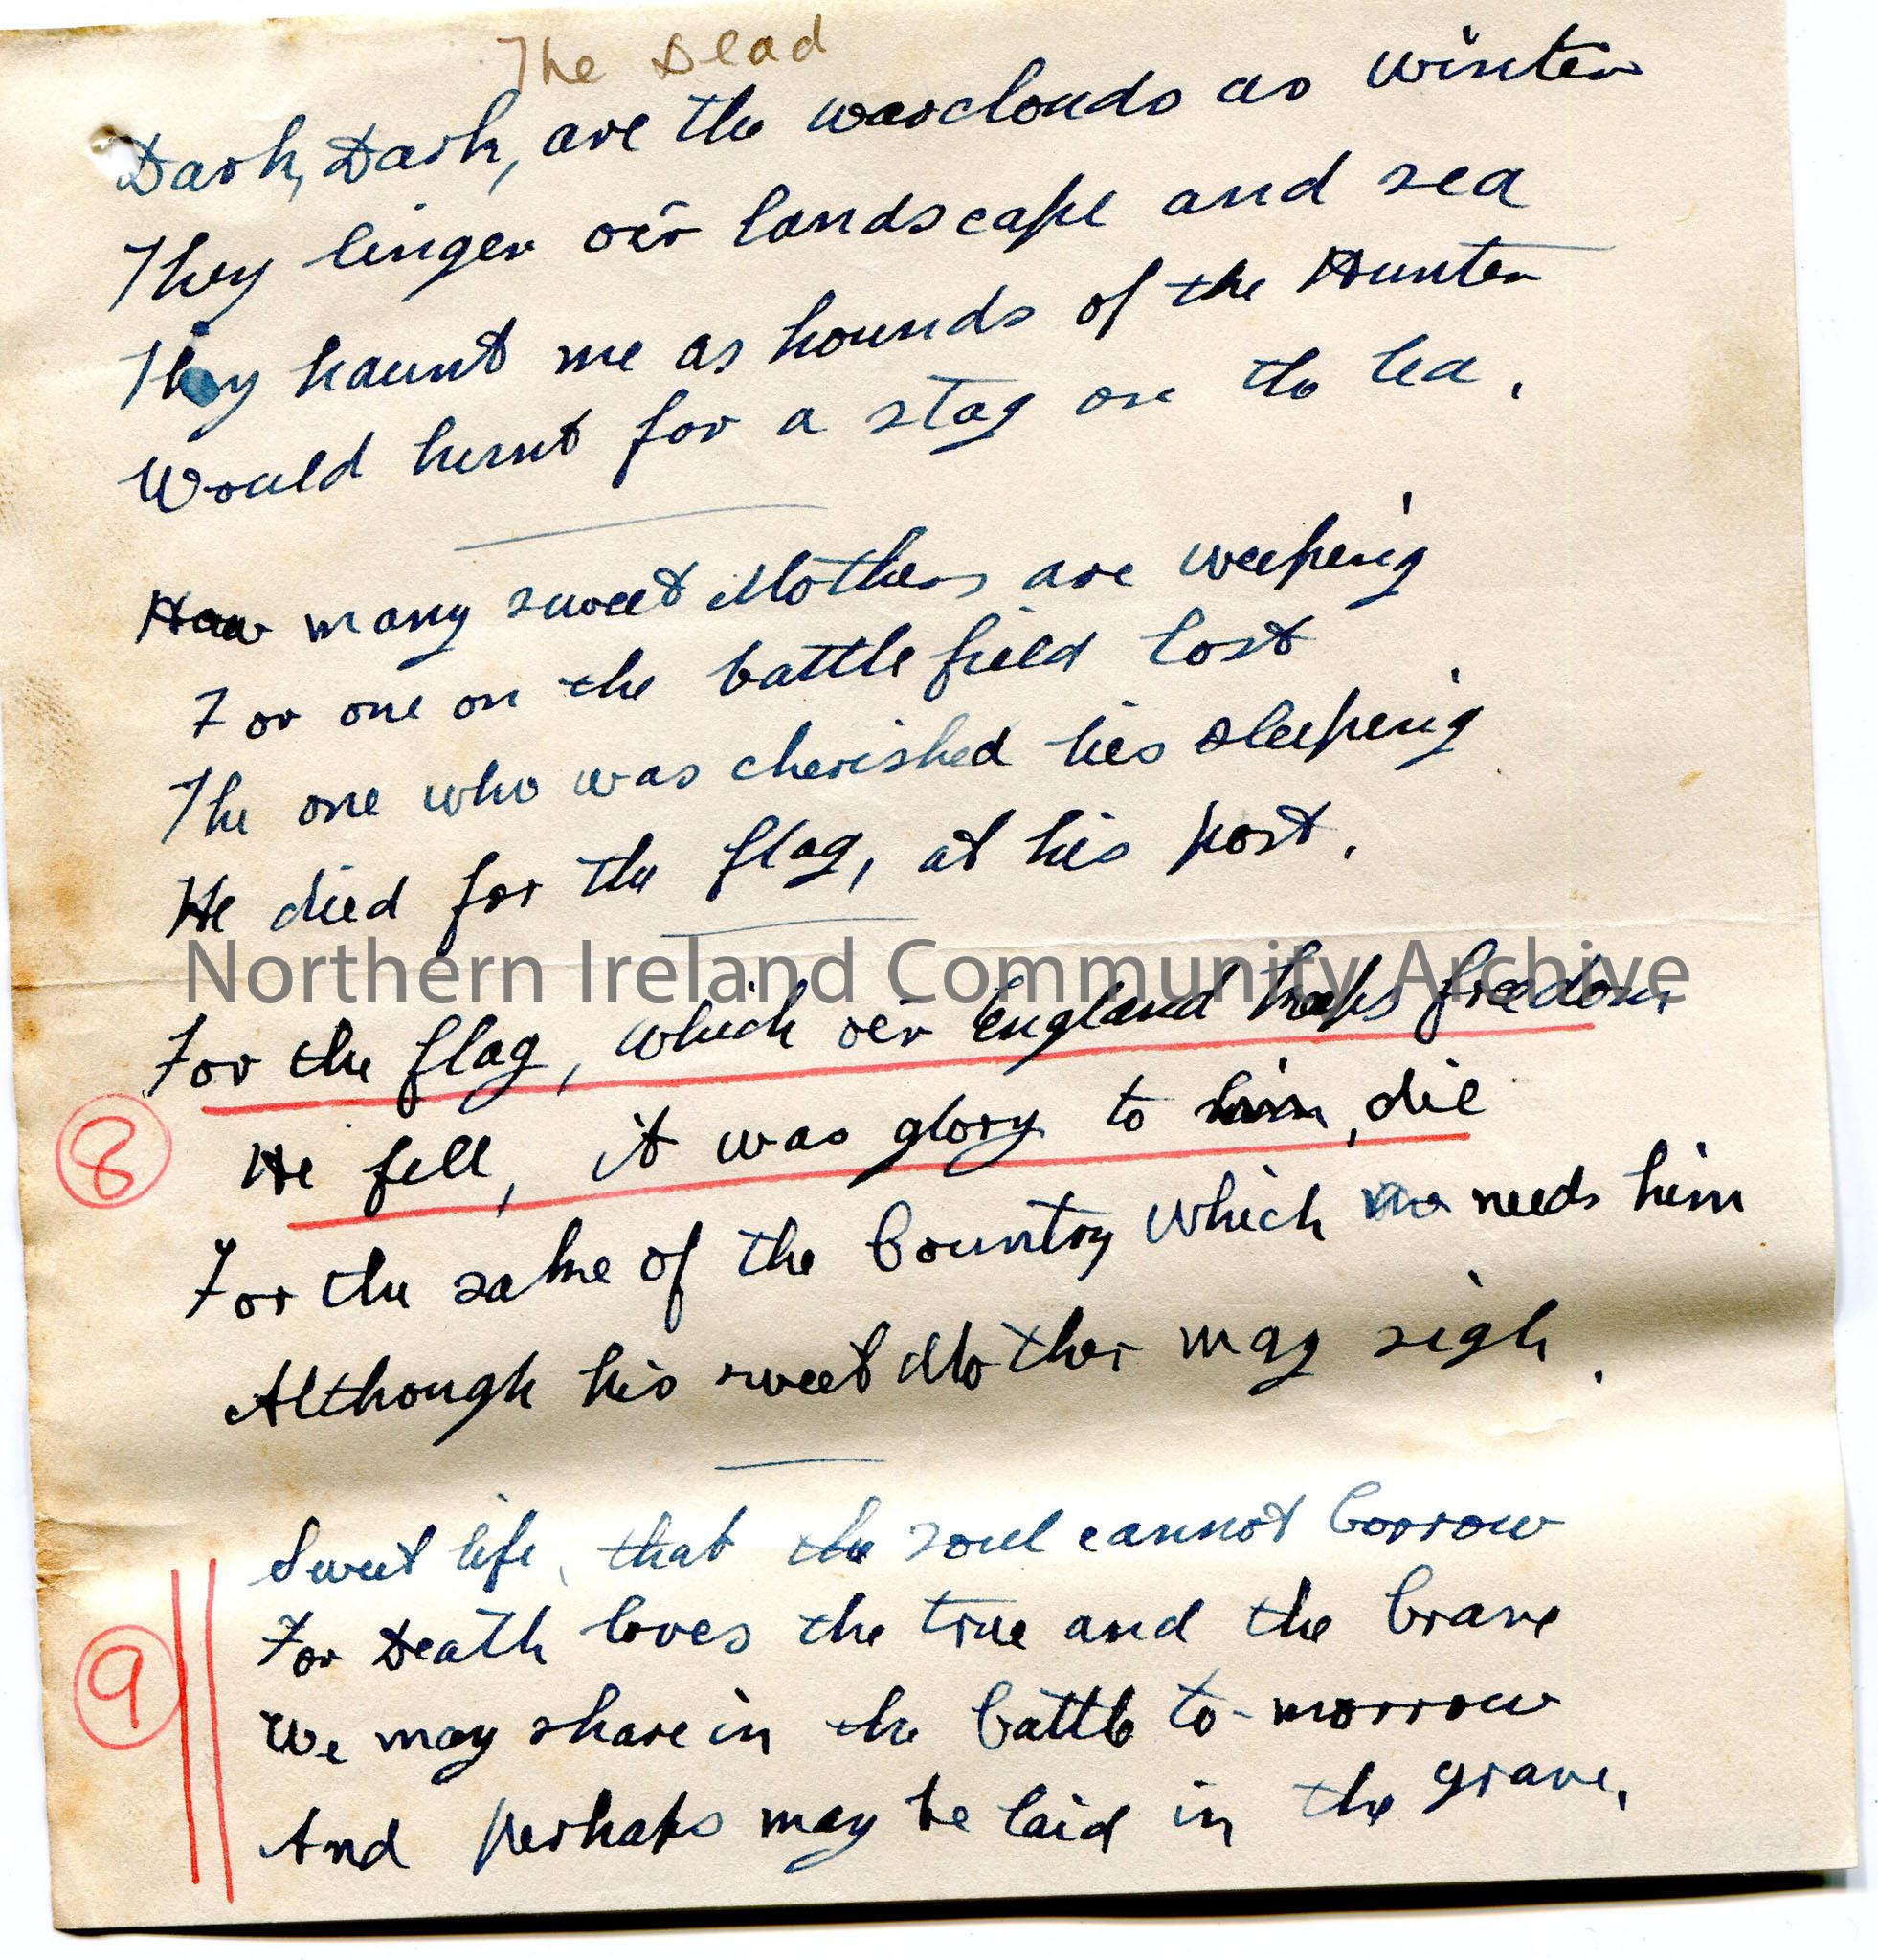 The Dead
Dark, Dark, are the warclouds as winter
They linger o'er landscape and sea
They haunt me as hounds of the Hunter
Would hunt for a stag on the lea.
How many sweet Mothers are weeping
For one on the battlefield lost
The one who was cherished lies sleeping
He died for the flag, at his post.
Northern Ireland Community Archive
For the flag, which o'er England keeps freedom
8
He fell, it was glory to him, die
For the sake of the Country which needs him
Although his sweet Mother may sigh.
Sweet life, that the soul cannot borrow
For Death loves the true and the brave
9
We may share in the battle to-morrow
And perhaps may be laid in the grave.